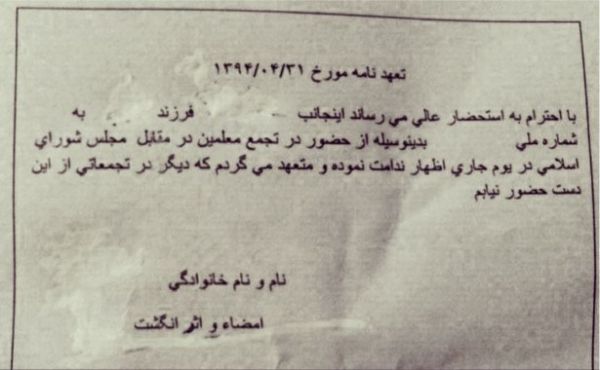 تعهد نامه مورخ ۱۳۹۴/۰۴/۳۱
با احترام به استحضار عالي مي رساند اينجانب فرزند به
شماره ملي بدينوسيله از حضور در تجمع معلمين در مقابل مجلس شوراي
اسلامي در يوم جاري اظهار ندامت نموده و متعهد مي گردم كه ديگر در تجمعاتي از اين
دست حضور نيابم
نام و نام خانوادگي
امضاء و اثر انگشت